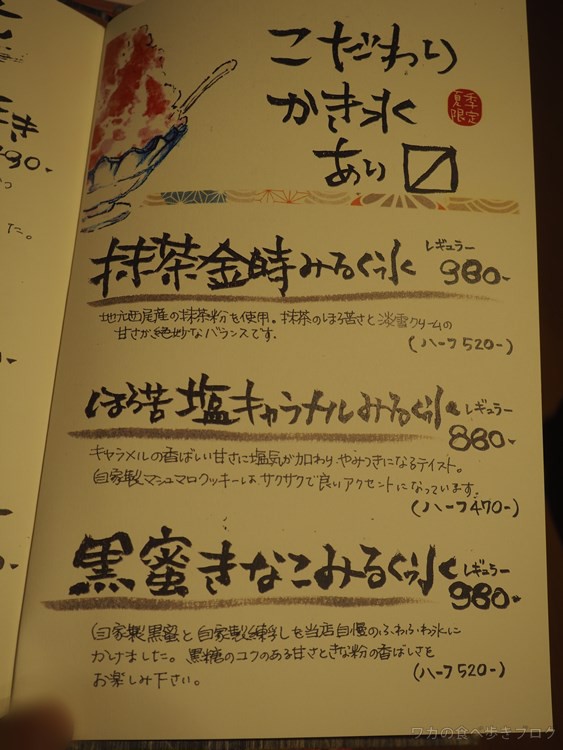 こだわり
かき氷
夏季
限定
あり〼
抹茶金時みるく氷 レギュラー 980-
地元西尾産の抹茶粉を使用。抹茶のほろ苦さと淡雪クリームの
甘さが絶妙なバランスです。
(ハーフ520-)
ほろ苦塩キャラメルみるく氷 レギュラー 880-
キャラメルの香ばしい甘さに塩気が加わり、やみつきになるテイスト。
自家製マシュマロクッキーはサクサクで良いアクセントになっています。
(ハーフ470-)
黒蜜きなこみるく氷 レギュラー 980-
自家製黒蜜と自家製練乳を当店自慢のふわふわ氷に
かけました。黒糖のコクのある甘さときな粉の香ばしさを
お楽しみ下さい。
(ハーフ520-)
ワカの食べ歩きブログ